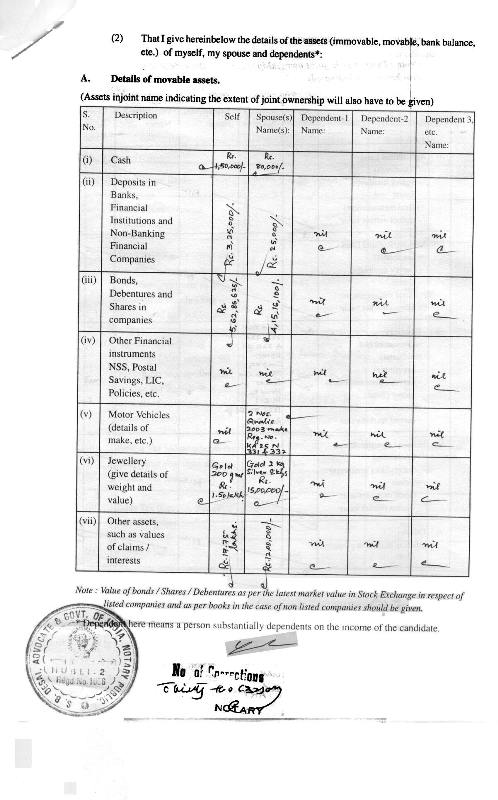 (2) That I give hereinbelow the details of the assets (immovable, movable, bank balance,
etc.) of myself, my spouse and dependents*:
A. Details of movable assets.
(Assets injoint name indicating the extent of joint ownership will also have to be given)
S. No. Description Self Spouse(s) Name(s): Dependent-1 Name: Dependent-2 Name: Dependent 3, etc. Name:
(i) Cash Rs. 1,50,000/- Rs. 80,000/-
(ii) Deposits in
Banks,
Financial
Institutions and
Non-Banking
Financial
Companies
Rs. 3,25,000/- Rs. 25,000/- nil nil nil
(iii) Bonds,
Debentures and
Shares in
companies
Rs 5,62,85,625/- Rs 4,15,16,100/- nil nil nil
(iv) Other Financial
instruments
NSS, Postal
Savings, LIC,
Policies, etc.
nil nil nil nil nil
(v) Motor Vehicles
(details of
make, etc.)
nil
2 Nos.
Qualis
2003 make
Reg. No.
KA 25 N
331 & 332
nil nil nil
(vi) Jewellery
(give details of
weight and
value)
Gold
200 gms
Rs.
1.50 lakh
Gold 2 kg
Silver 8 kgs
Rs.
15,00,000/-
nil nil nil
(vii) Other assets,
such as values
of claims /
interests
Rs. 17.75 lakhs. Rs. 1200,000/- nil nil nil
Note : Value of bonds / Shares / Debentures as per the latest market value in Stock Exchange in respect of
listed companies and as per books in the case of non listed companies should be given.
* Dependent here means a person substantially dependents on the income of the candidate.
S. B. DESAI, ADVOCATE & GOVT. OF INDIA, NOTARY PUBLIC
HUBLI-2
No of Corrections
NOTARY